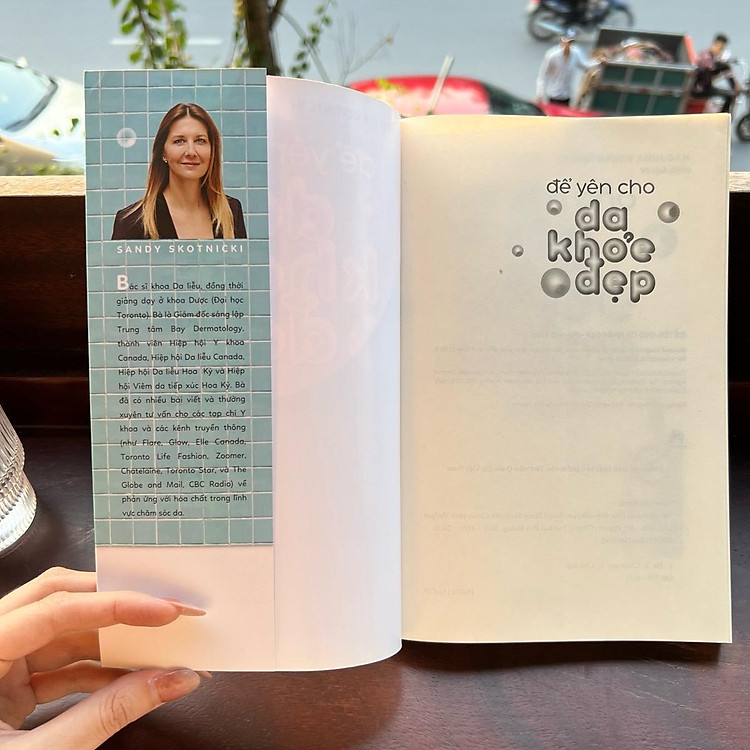 SANDY SKOTNICKI
Bác sĩ khoa Da liễu, đồng thời
giảng dạy ở khoa Dược (Đại học
Toronto). Bà là Giám đốc sáng lập
Trung tâm Bay Dermatology,
thành viên Hiệp hội Y khoa
Canada, Hiệp hội Da liễu Canada,
Hiệp hội Da liễu Hoa Kỳ và Hiệp
hội Viêm da tiếp xúc Hoa Kỳ. Bà
đã có nhiều bài viết và thường
xuyên tư vấn cho các tạp chí Y
khoa và các kênh truyền thông
(như Flare, Glow, Elle Canada,
Toronto Life Fashion, Zoomer,
Chatelaine, Toronto Star, và The
Globe and Mail, CBC Radio) về
phản ứng với hóa chất trong lĩnh
vực chăm sóc da.
để yên cho
da
khỏe
đẹp